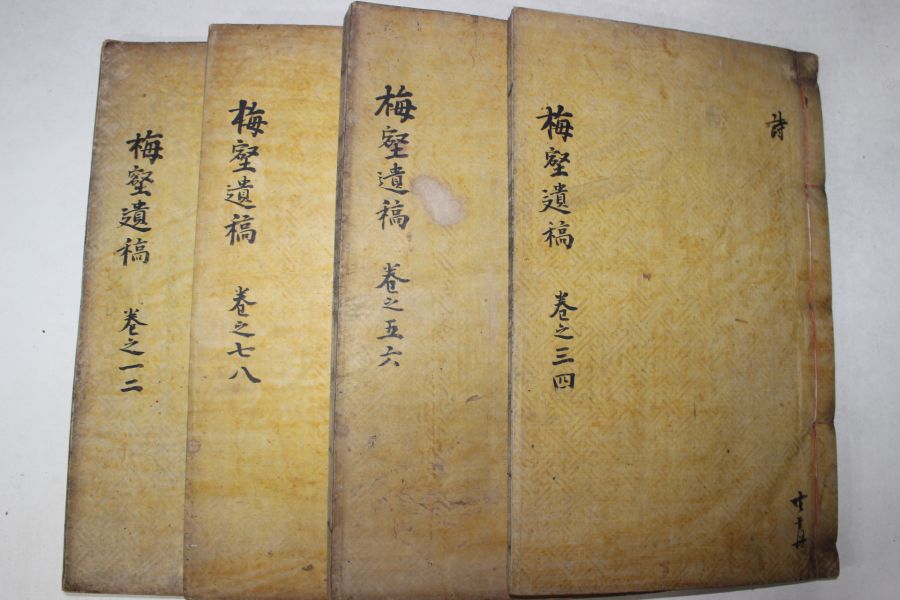 詩
梅壑遺稿 卷之三四
梅壑遺稿 卷之五六
梅壑遺稿 卷之七八
梅壑遺稿 卷之一二